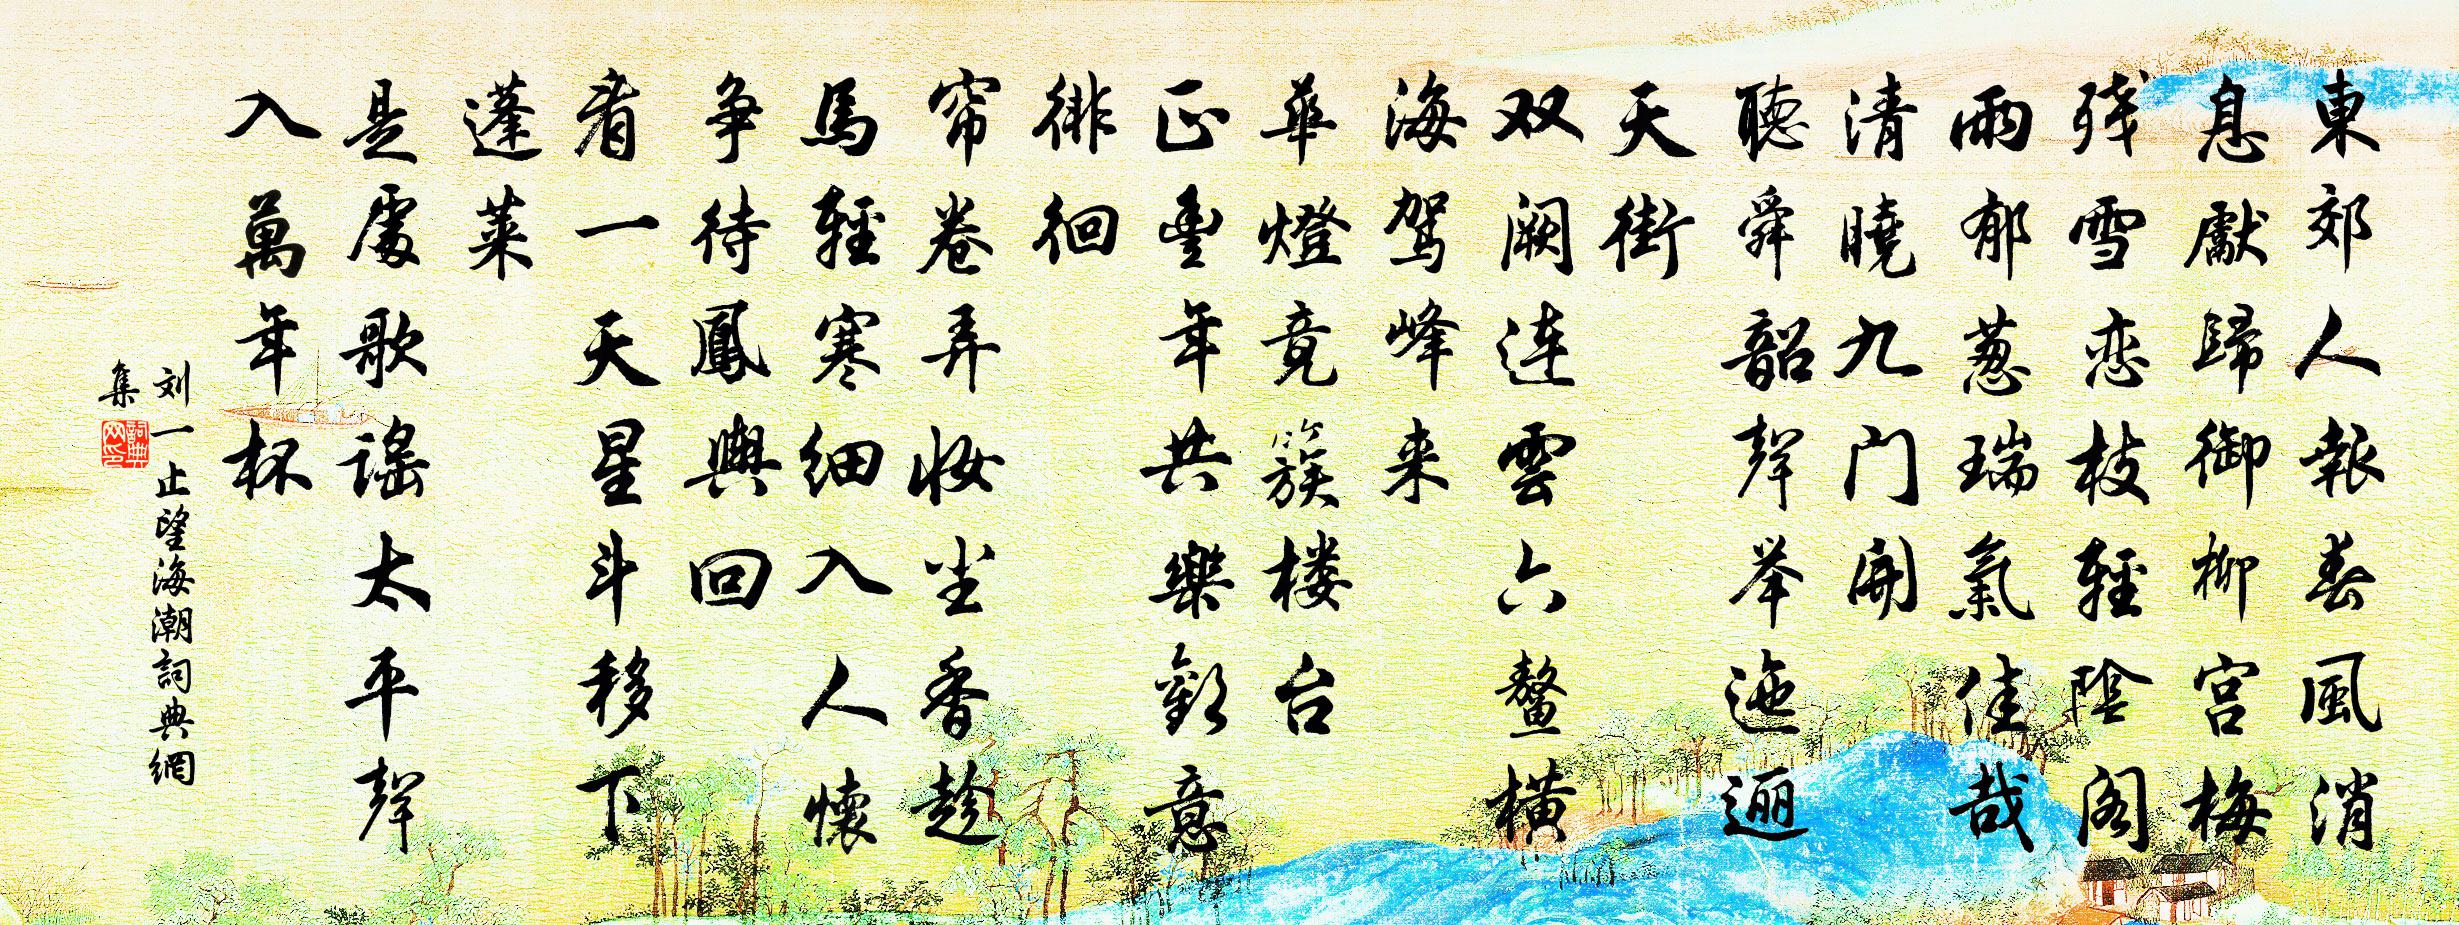 東郊人報春風消
息獻歸御柳宮梅
残雪恋枝輕陰阁
雨郁葱瑞氣佳哉
清曉九门開
聽舜韶聲举迤逦
天街
双阙连雲六鳌横
海驾峰来
華燈竞簇楼台
正豊年共樂歡意
徘徊
帘卷弄妆尘香趁
馬輕寒细入人懷
争待鳳輿回
看一天星斗移下
蓬莱
是處歌谣太平聲
入萬年杯
刘一止望海潮詞典網
集
詞典网印